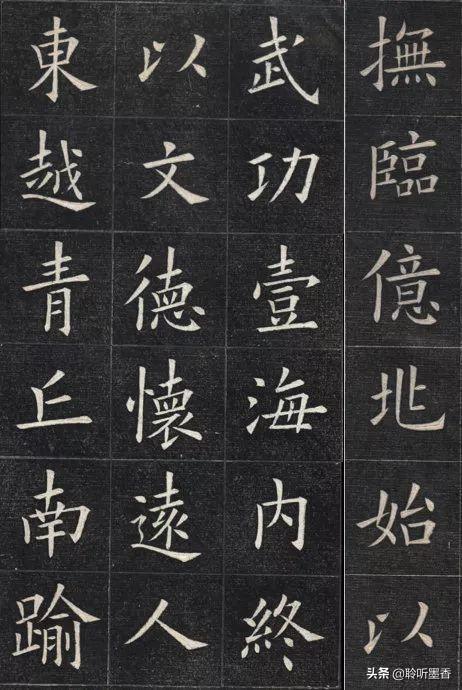 撫臨億兆始以
武功壹海内終
以文德懷遠人
東越青丘南踰
头条 @聆听墨香